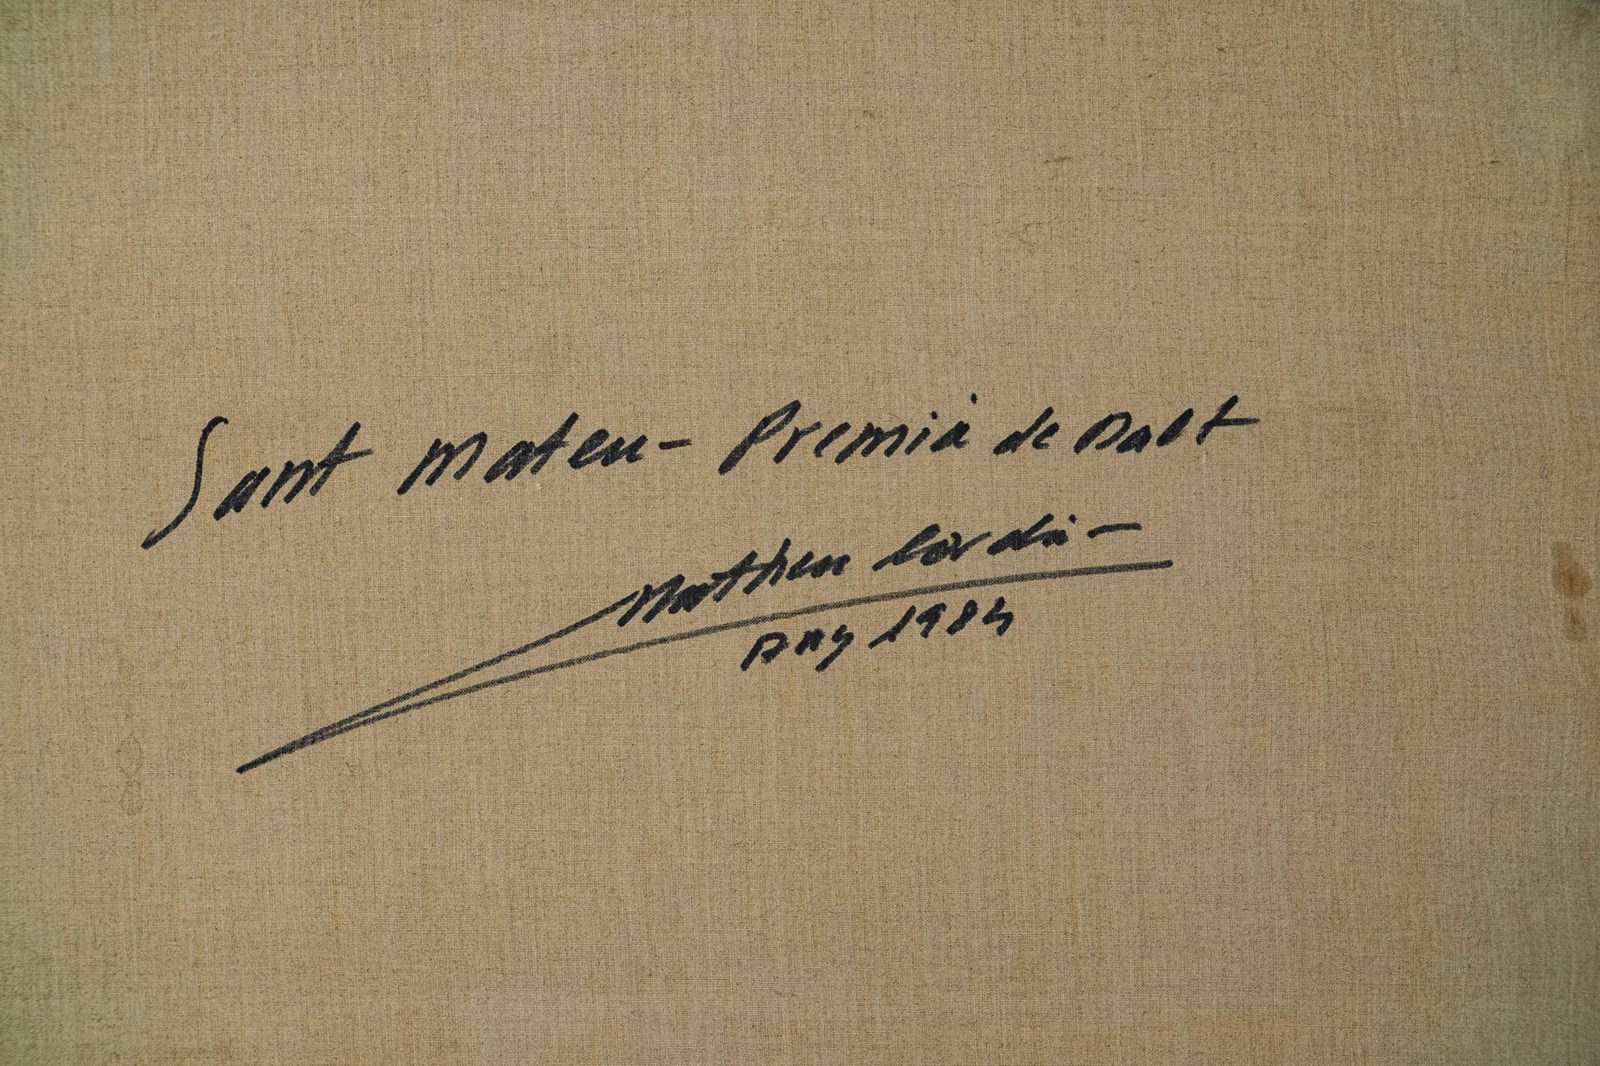 Sant Mateu - Premià de Dalt
Mathieu Cordà -
Any 1984